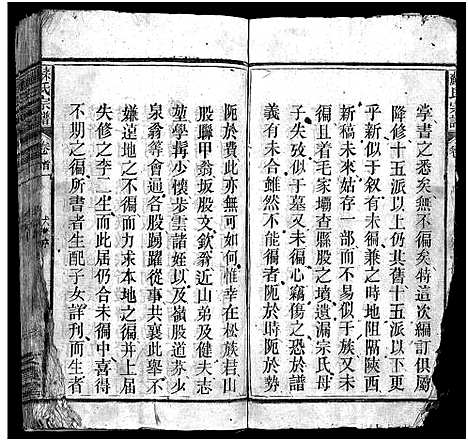 蘇氏宗譜
掌書之悉矣無不徧矣特這次編訂俱屬
降修十五派以上仍其舊十五派以下更
乎新似于叙有未徊兼之時地阻隔陝西
新稿未來姑存一部而不似于族又未
徊且着毛家壩查縣股之墳遺漏宗氏母
子失載于墓又未徊心竊傷之恐於譜
義有未合雖然不能徧者阨於時阨於勢
阨於費此亦無可如何惟幸在松族君山
股聯甲翁坂股文欽翁近山弟及健夫志
堃學精少懷步雲諸姪以及嶺股道芬少
泉翁等會過各股踢躍從事共襄此舉
嫌遠地之不徧而力求本地之徧并上屆
失修之李二生而此屆仍合未徧中喜得
不期之徧所書者生配子女詳刋而生者
蘇氏宗譜
卷首